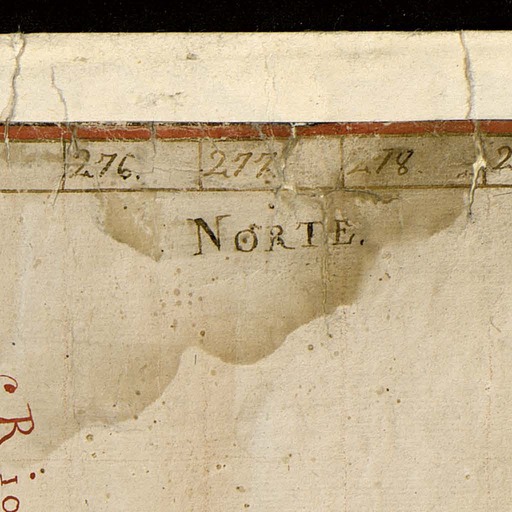 276. 277. 278.
NORTE.
Rio